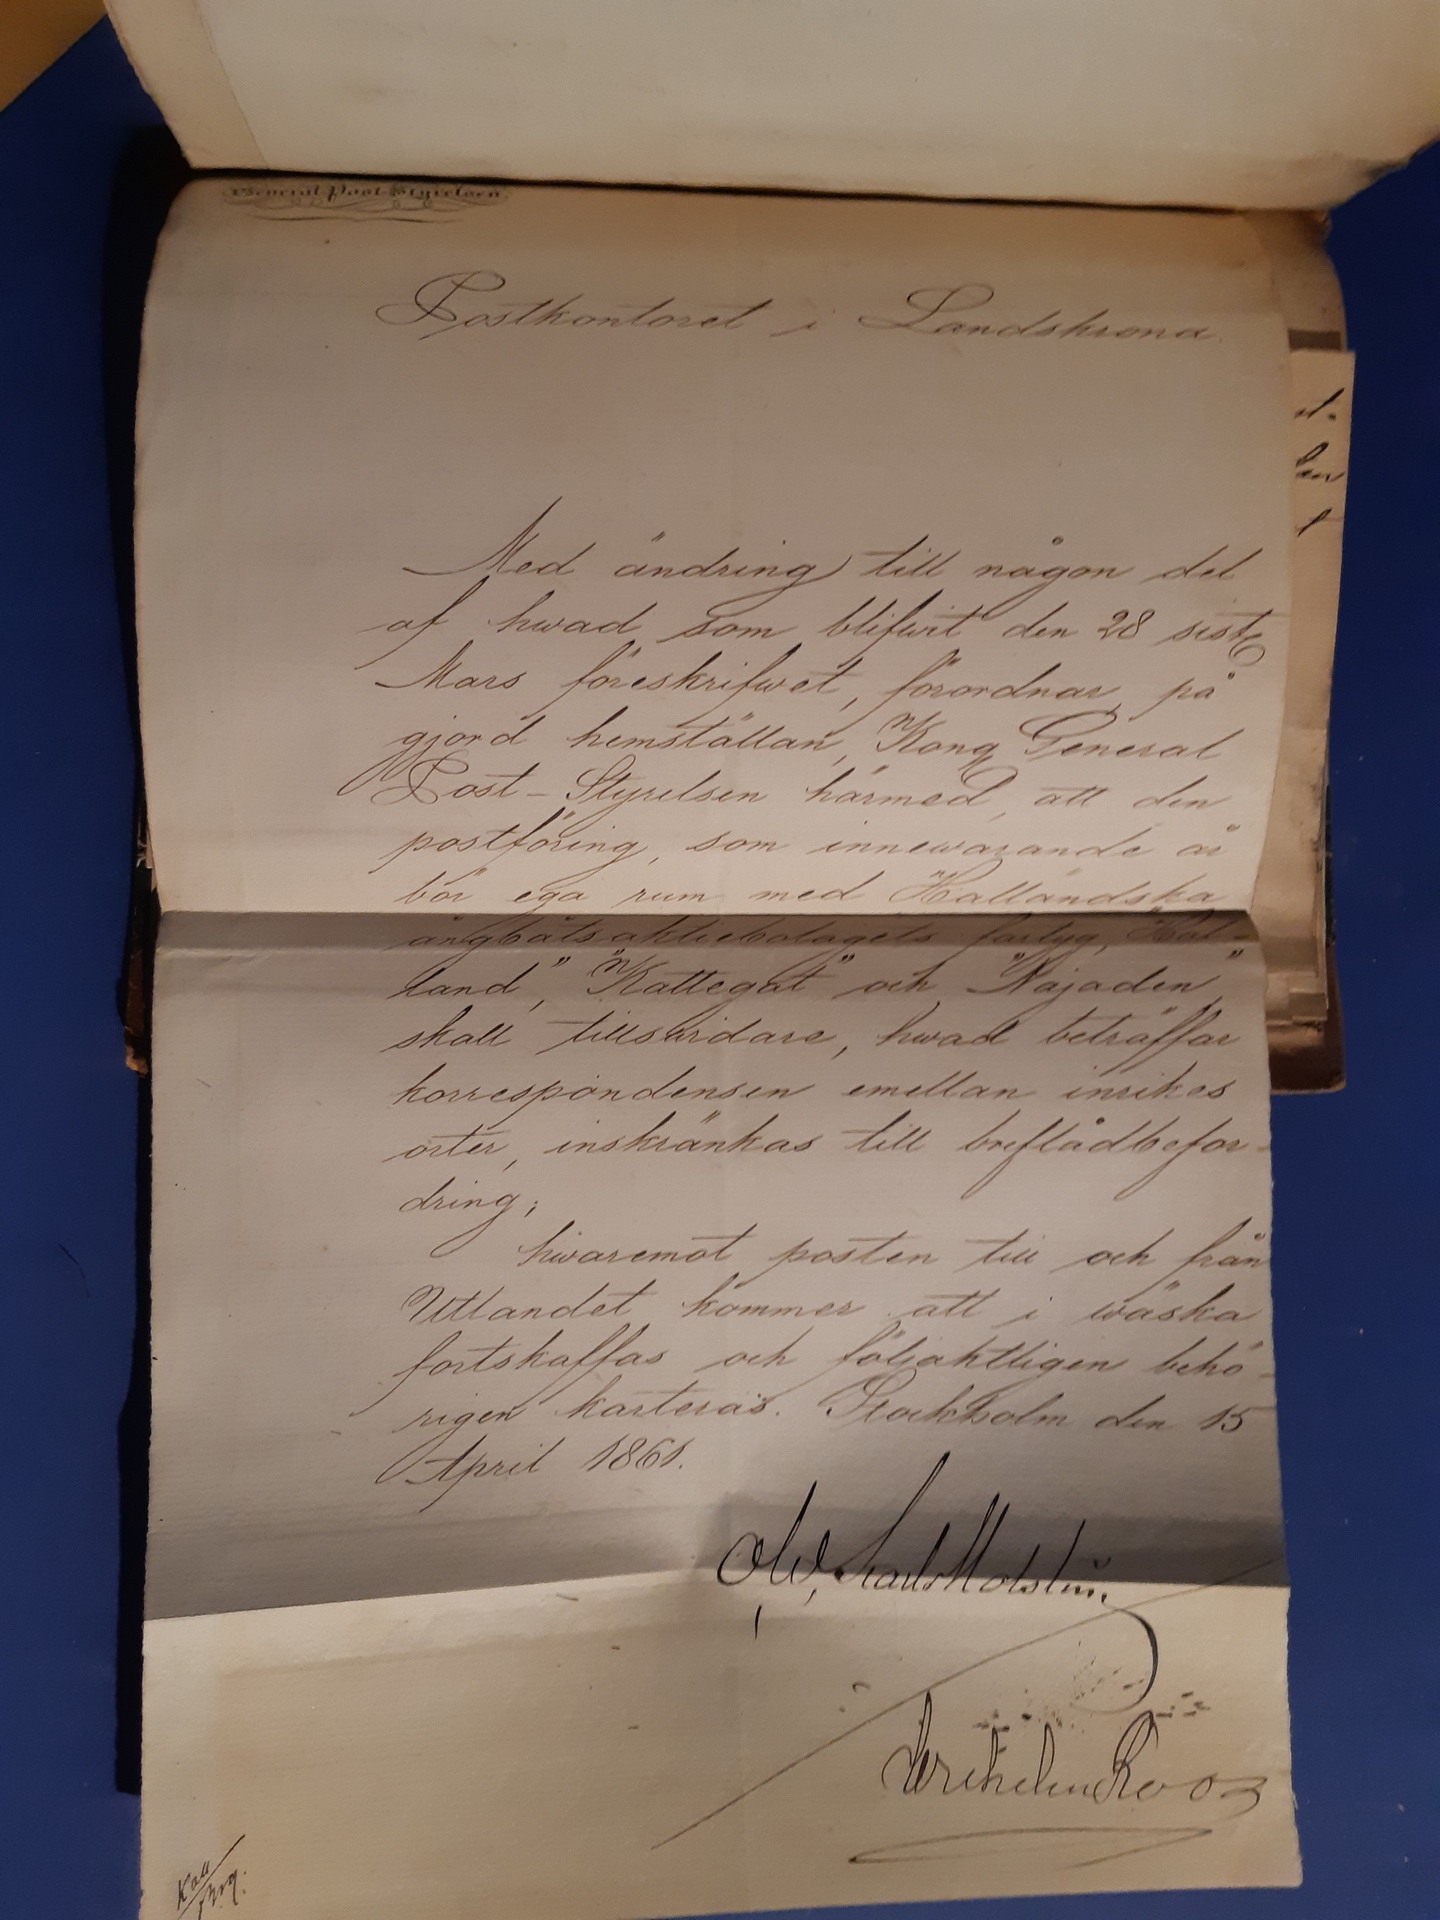 General Post-Styrelsen
Postkontoret i Landskrona.
Med ändring till någon del
af hwad som blifwit den 28 siste
Mars föreskrifwet, förordnar, på
gjord hemställan, Kong General
Post-Styrelsen härmed, att den
postföring, som innewarande år
bör ega rum med Halländska
ångbåtsaktiebolagets fartyg, "Hal-
land", "Kattegat" och "Najaden"
skall tillswidare, hwad beträffar
korrespondensen emellan inrikes
orter, inskränkas till breflådbefor-
dring;
hwaremot posten till och från
Utlandet kommer att i wäska
fortskaffas och följaktligen behö-
rigen karteras. Stockholm den 15
April 1861.
Wilhelm Roos